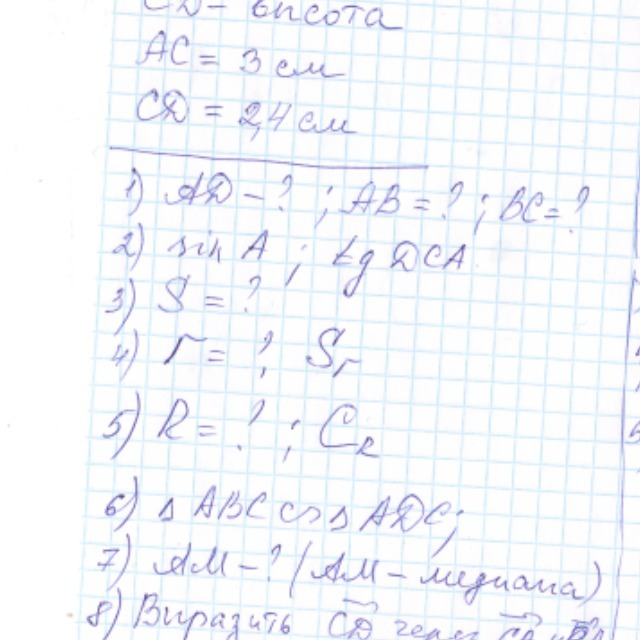 CD - высота
AC = 3 см
CD = 2,4 см
1) AD - ? ; AB = ? ; BC = ?
2) sin A ; tg DCA
3) S = ?
4) r = ? S_r
5) R = ? ; C_R
6) △ ABC ∽ △ ADC;
7) AM - ? (AM - медиана)
8) Выразить CD через